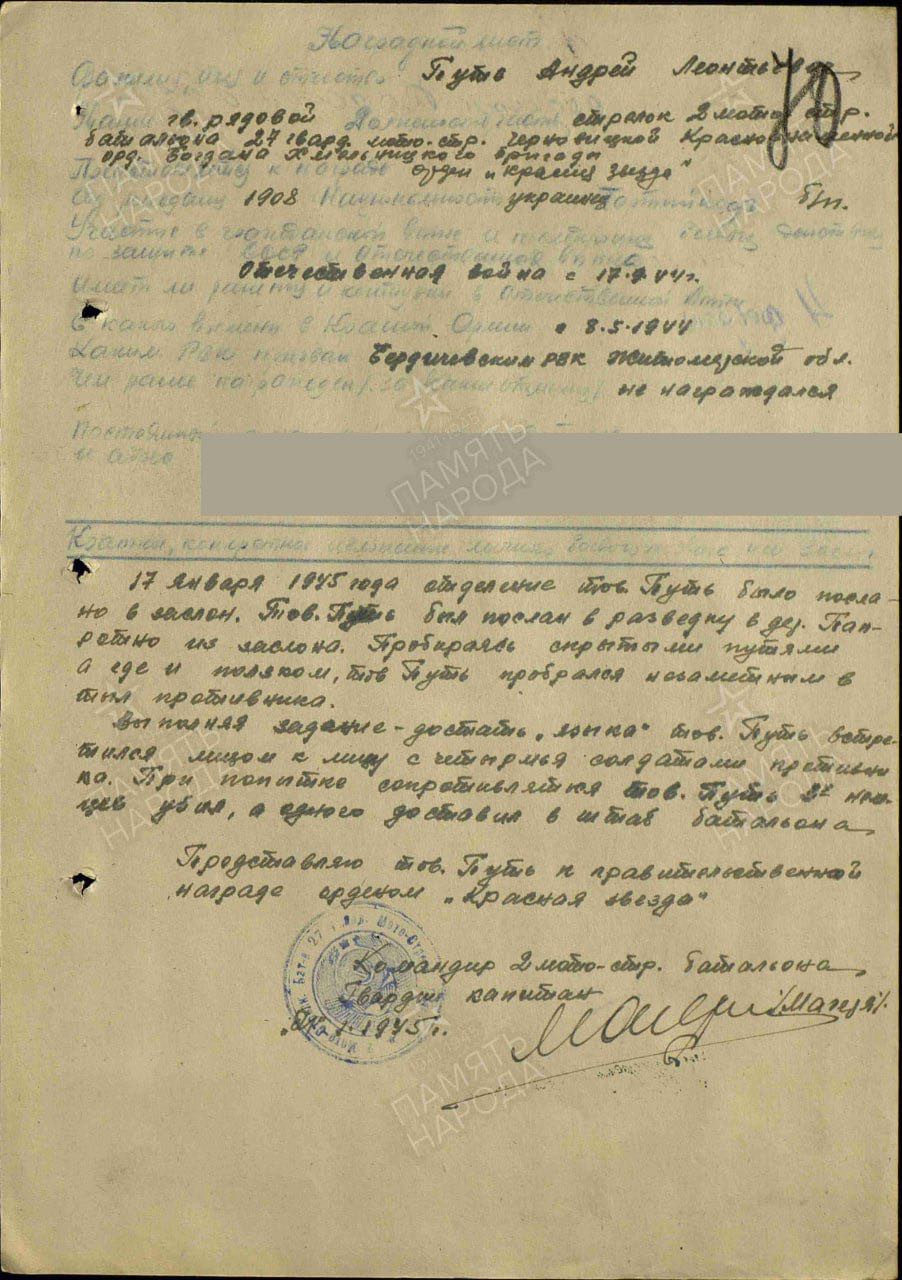 Наградной лист
Фамилия, имя и отчество Путь Андрей Леонтьевич
Звание гв. рядовой Должность стрелок 2 мото стр.
батальона 27 гвард. мото-стр. Черновицкой Краснознаменной
орд. Богдана Хмельницкого бригады
Представляется к награде Орден „Красная звезда"
Год рождения 1908 Национальность украинец Партийность б/п.
Участие в гражданской войне и последующих боевых действиях
по защите СССР и отечественной войне
Отечественная война с 17.7.44г.
Имеет ли ранения и контузии в отечественной войне
С какого времени в Красной Армии с 8.5.1944
Каким РВК призван Бердичевским РВК Житомирской обл.
Чем ранее награжден / за какие отличия / не награждался
Постоянный
и адрес
Краткое, конкретное изложение личного боевого
17 января 1945 года отделение тов. Путь было посла-
но в заслон. Тов. Путь был послан в разведку в дер. Пап-
ротно из заслона. Пробираясь скрытыми путями
а где и ползком, тов Путь пробрался незаметным в
тыл противника.
Выполняя задание - достать „языка" тов. Путь встре-
тился лицом к лицу с четырмья солдатами противни
ка. При попытке сопротивляться тов. Путь 3х нем-
цев убил, а одного доставил в штаб батальона
Представляю тов. Путь к правительственной
награде орденом „Красная звезда"
Командир 2 мото-стр. батальона
Гвардии капитан
1.1945 г.
ПАМЯТЬ
НАРОДА